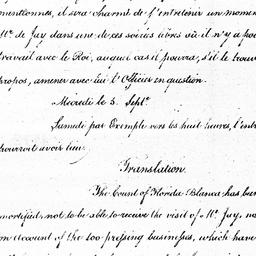 mentionnes, il sera charmé de l'entretenir un momen
Mr. de Jay dans une de ces soirées ières où il n'y a po
travail avec le Roi, auquel cas il pourra, s'il le trouv
propos, amener avec lui l'Officier en question.
Mecredi le 3. Septr.
Samedi par Exemple vers les huit heures, l'entr
pourroit avoir lieu.
Translation.
The Count of Florida Blanca has been
mortified not to be able to receive the visit of Mr. Jay, no
on account of the too pressing business, which have